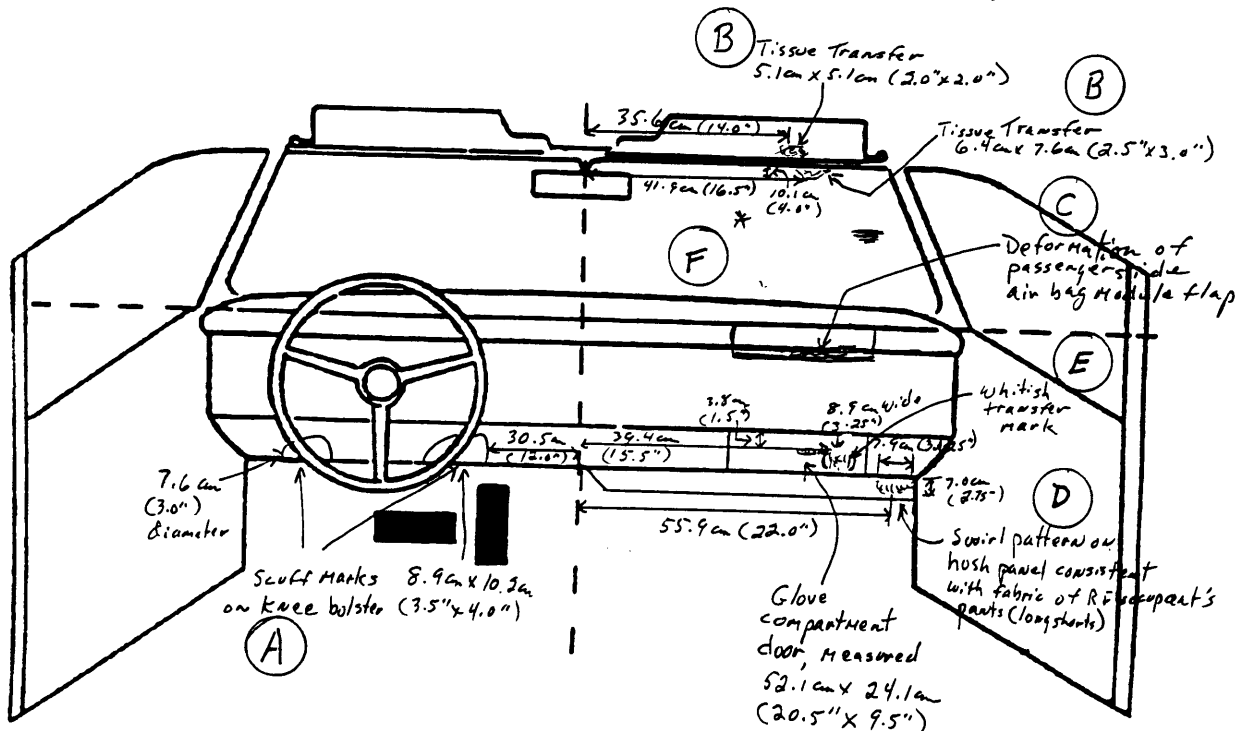 B
Tissue Transfer
5.1cm x 5.1cm (2.0"x2.0")
B
35.6 cm (14.0")
Tissue Transfer
6.4cm x 7.6cm (2.5"x3.0")
41.9 cm (16.5")
10.1cm
(4.0")
*
C
Deformation of
passenger side
air bag module flap
F
E
whitish
transfer
mark
3.8cm
(1.5")
8.9 cm wide
(3.25")
30.5cm
(12.0")
39.4cm
(15.5")
7.9cm (3.125")
7.0cm
(2.75")
7.6 cm
(3.0")
diameter
55.9cm (22.0")
D
Swirl pattern on
hush panel consistent
with fabric of RF occupant's
pants (long shorts)
Scuff Marks
on knee bolster
8.9cm x 10.2cm
(3.5" x 4.0")
A
Glove
compartment
door, measured
52.1cm x 24.1cm
(20.5" x 9.5")